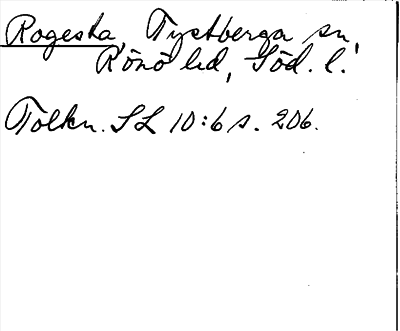 Rogesta, Tystberga sn,
Rönö hd, Söd. l.
Tolkn. SL 10:6 s. 206.